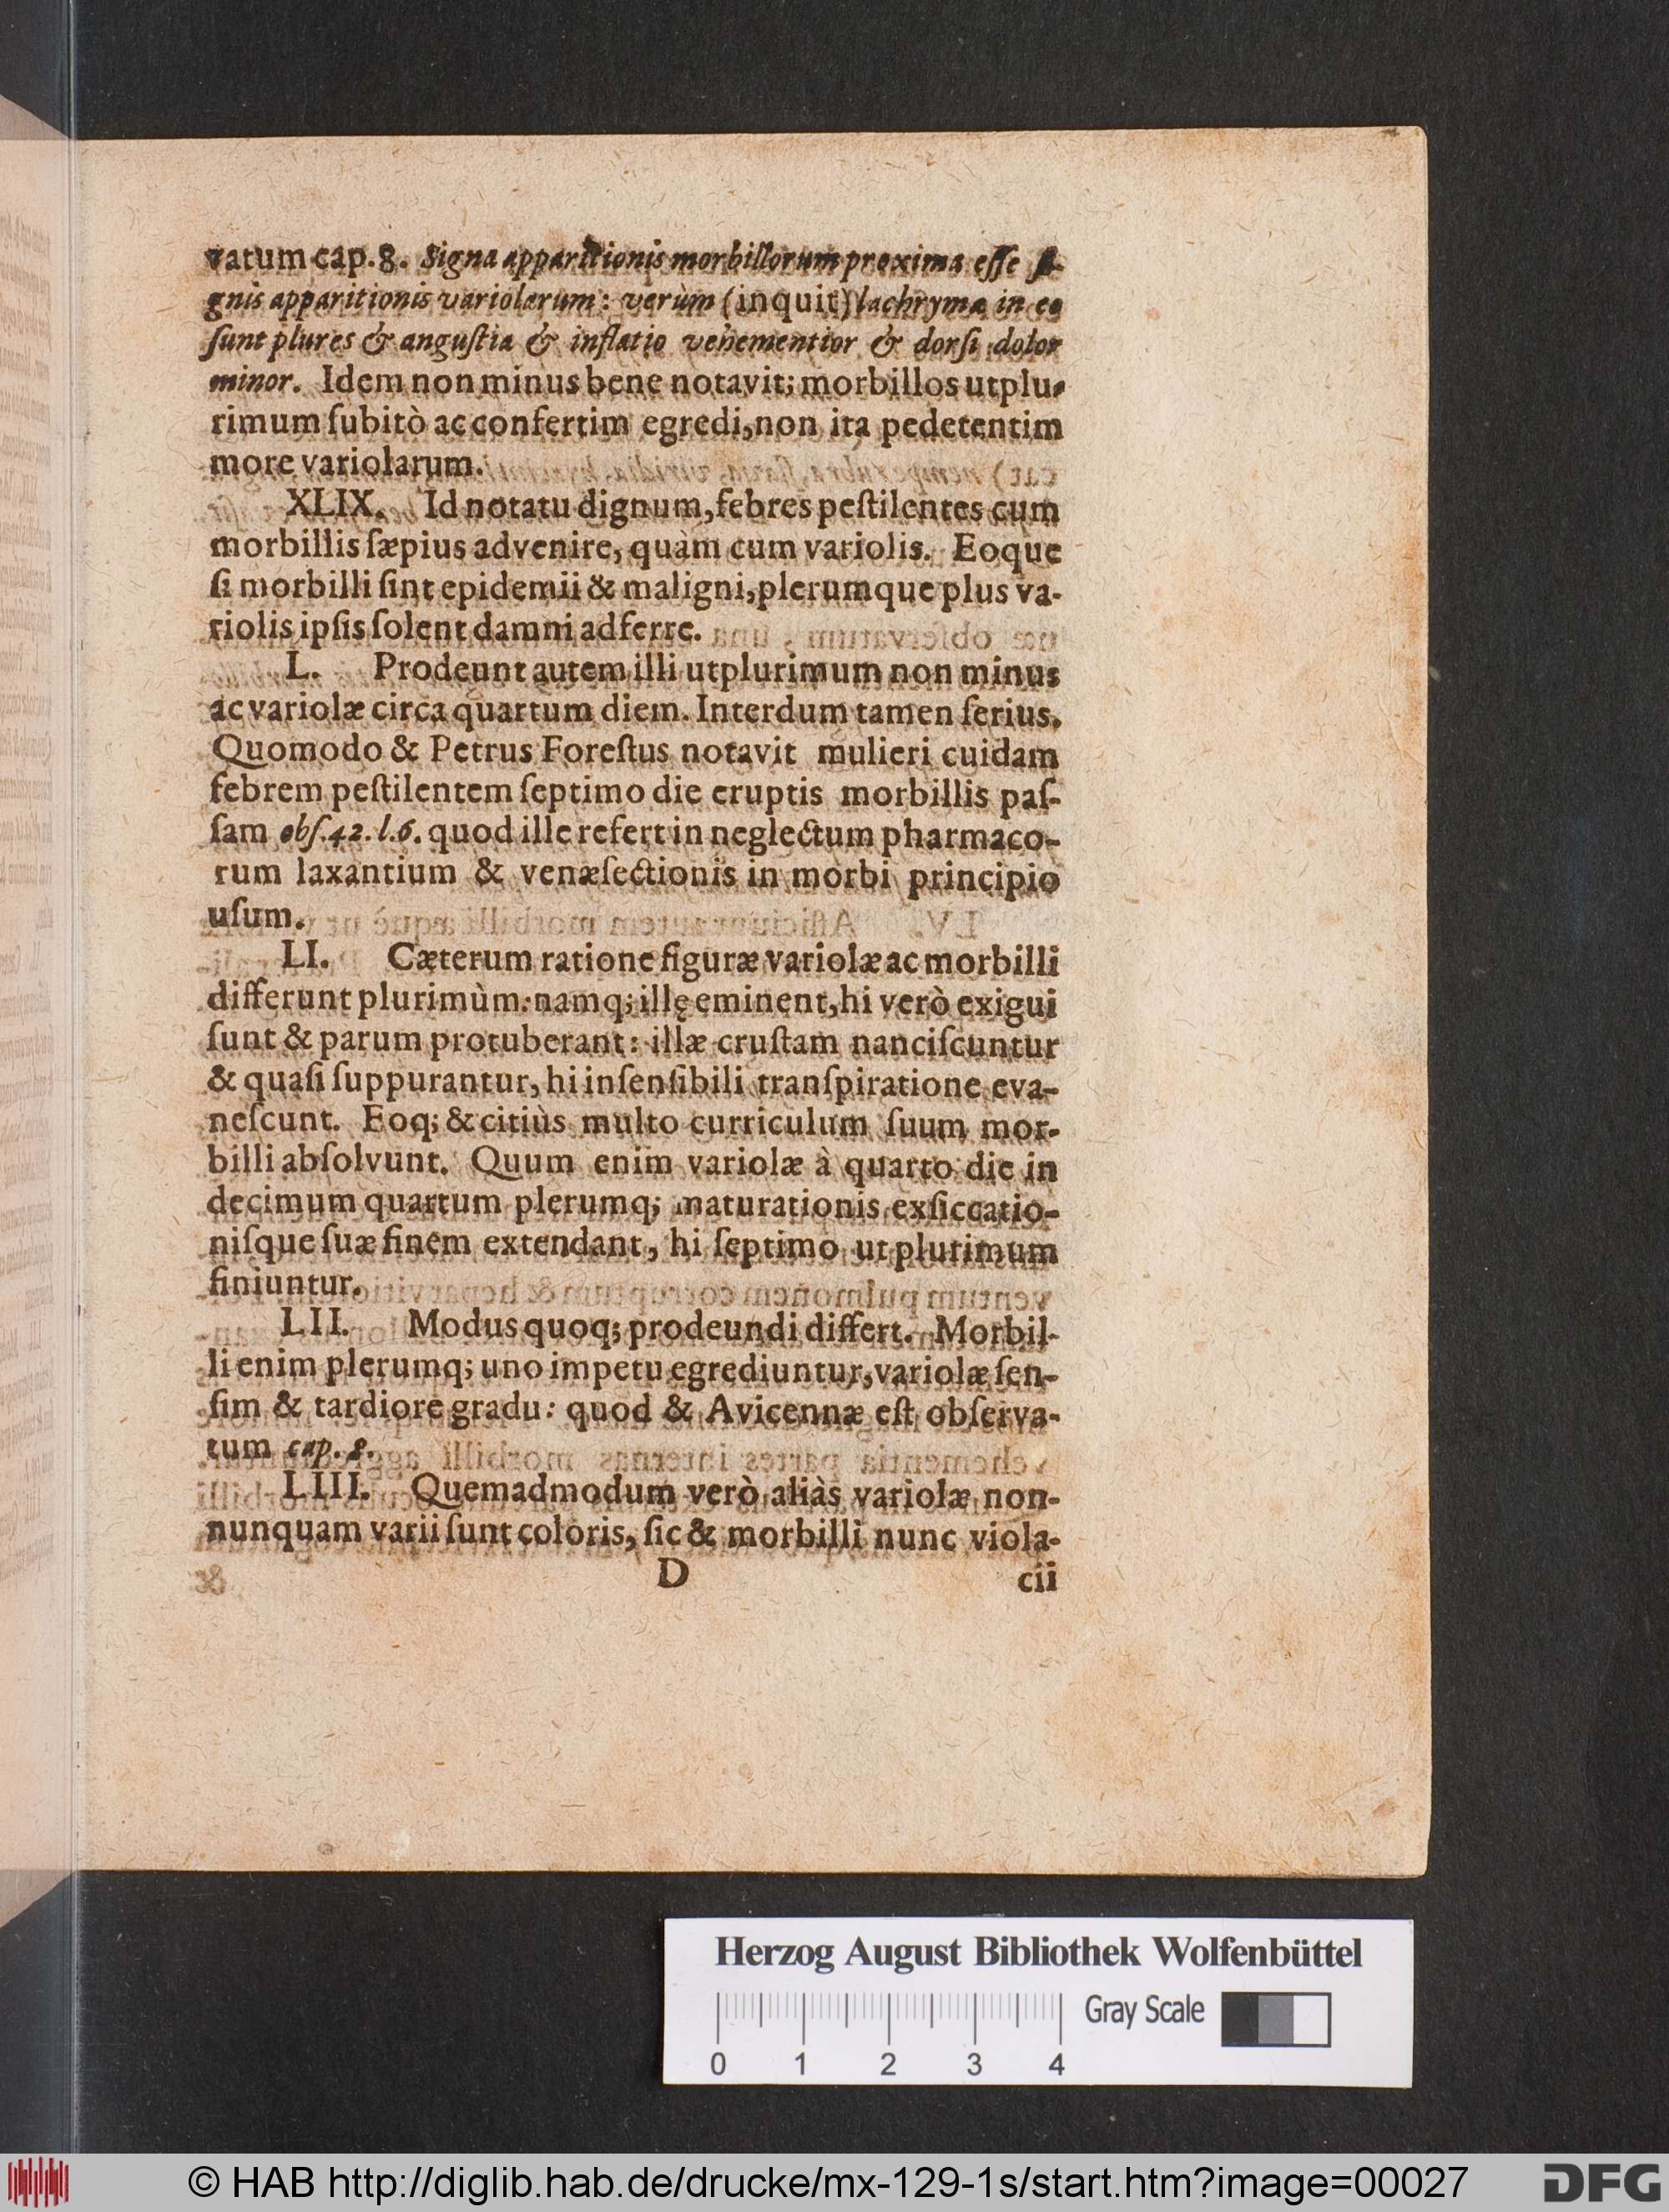 vatum cap. 8. Signa apparitionis morbillorum proxima esse si-
gnis apparitionis variolarum: verùm (inquit) lachrymæ in eo
ſunt plures & anguſtia & inflatio vehementior & dorſi dolor
minor. Idem non minus bene notavit; morbillos utplu-
rimum ſubitò ac confertim egredi, non ita pedetentim
more variolarum.
XLIX. Id notatu dignum, febres peſtilentes cum
morbillis ſæpius advenire, quàm cum variolis. Eoque
ſi morbilli ſint epidemii & maligni, plerumque plus va-
riolis ipſis ſolent damni adferre.
L. Prodeunt autem illi utplurimum non minus
ac variolæ circa quartum diem. Interdum tamen ſerius.
Quomodo & Petrus Foreſtus notavit mulieri cuidam
febrem peſtilentem ſeptimo die eruptis morbillis paſ-
ſam obſ. 42. l. 6. quod ille refert in neglectum pharmaco-
rum laxantium & venæſectionis in morbi principio
uſum.
LI. Cæterum ratione figuræ variolæ ac morbilli
differunt plurimùm: namq; illę eminent, hi verò exigui
ſunt & parum protuberant: illæ cruſtam nanciſcuntur
& quaſi ſuppurantur, hi inſenſibili tranſpiratione eva-
neſcunt. Eoq; & citiùs multo curriculum ſuum mor-
billi abſolvunt. Quum enim variolæ à quarto die in
decimum quartum plerumq; maturationis exſiccatio-
niſque ſuæ finem extendant, hi ſeptimo ut plutimum
finiuntur.
LII. Modus quoq; prodeundi differt. Morbil-
li enim plerumq; uno impetu egrediuntur, variolæ ſen-
ſim & tardiore gradu: quod & Avicennæ eſt obſerva-
tum cap. 8.
LIII. Quemadmodum verò aliàs variolæ non-
nunquam varii ſunt coloris, ſic & morbilli nunc viola-
D cii
Herzog August Bibliothek Wolfenbüttel
Gray Scale
0 1 2 3 4
© HAB http://diglib.hab.de/drucke/mx-129-1s/start.htm?image=00027
DFG